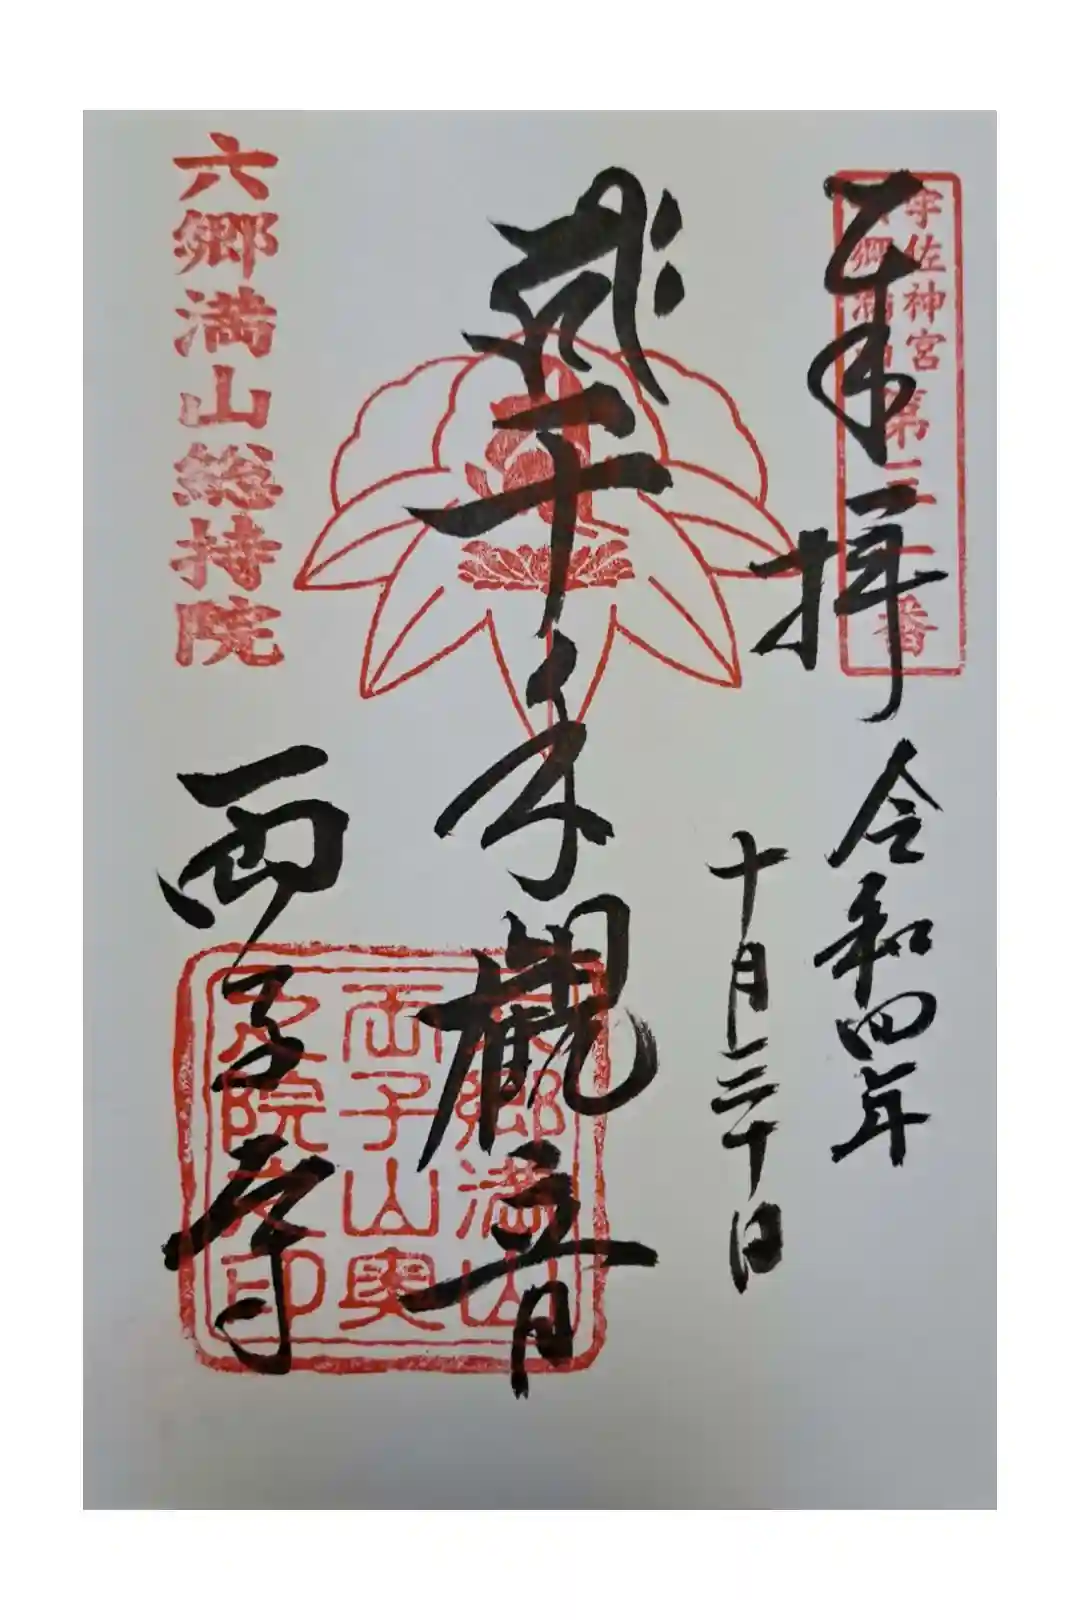 奉拝
令和四年
十月三十日
宇佐神宮
六郷満山
第三十一番
千手観音
六郷満山総持院
両子寺
六郷満山
両子山奥
之院之印